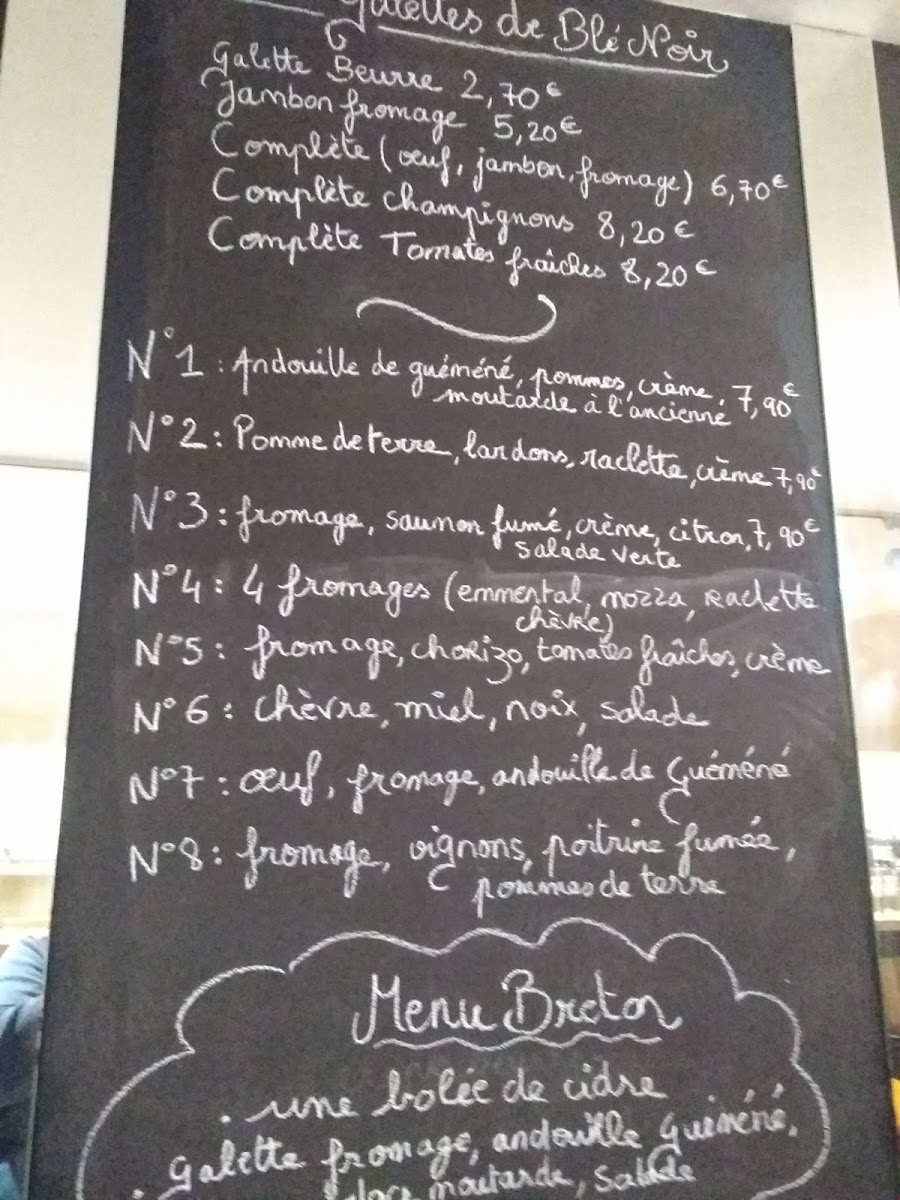 Galettes de Blé Noir
Galette Beurre 2,70€
Jambon fromage 5,20€
Complète (œuf, jambon, fromage) 6,70€
Complète champignons 8,20€
Complète Tomates fraîches 8,20€
N°1 : Andouille de guéméné, pommes, crème, 7,90€
moutarde à l'ancienne
N°2 : Pomme de terre, lardons, raclette, crème 7,90€
N°3 : fromage, saumon fumé, crème, citron, 7,90€
salade verte
N°4 : 4 fromages (emmental, mozza, raclette
chèvre)
N°5 : fromage, chorizo, tomates fraîches, crème
N°6 : chèvre, miel, noix, salade
N°7 : œuf, fromage, andouille de Guéméné
N°8 : fromage, oignons, poitrine fumée,
pommes de terre
Menu Breton
. une bolée de cidre
. Galette fromage, andouille Guéméné,
moutarde, salade